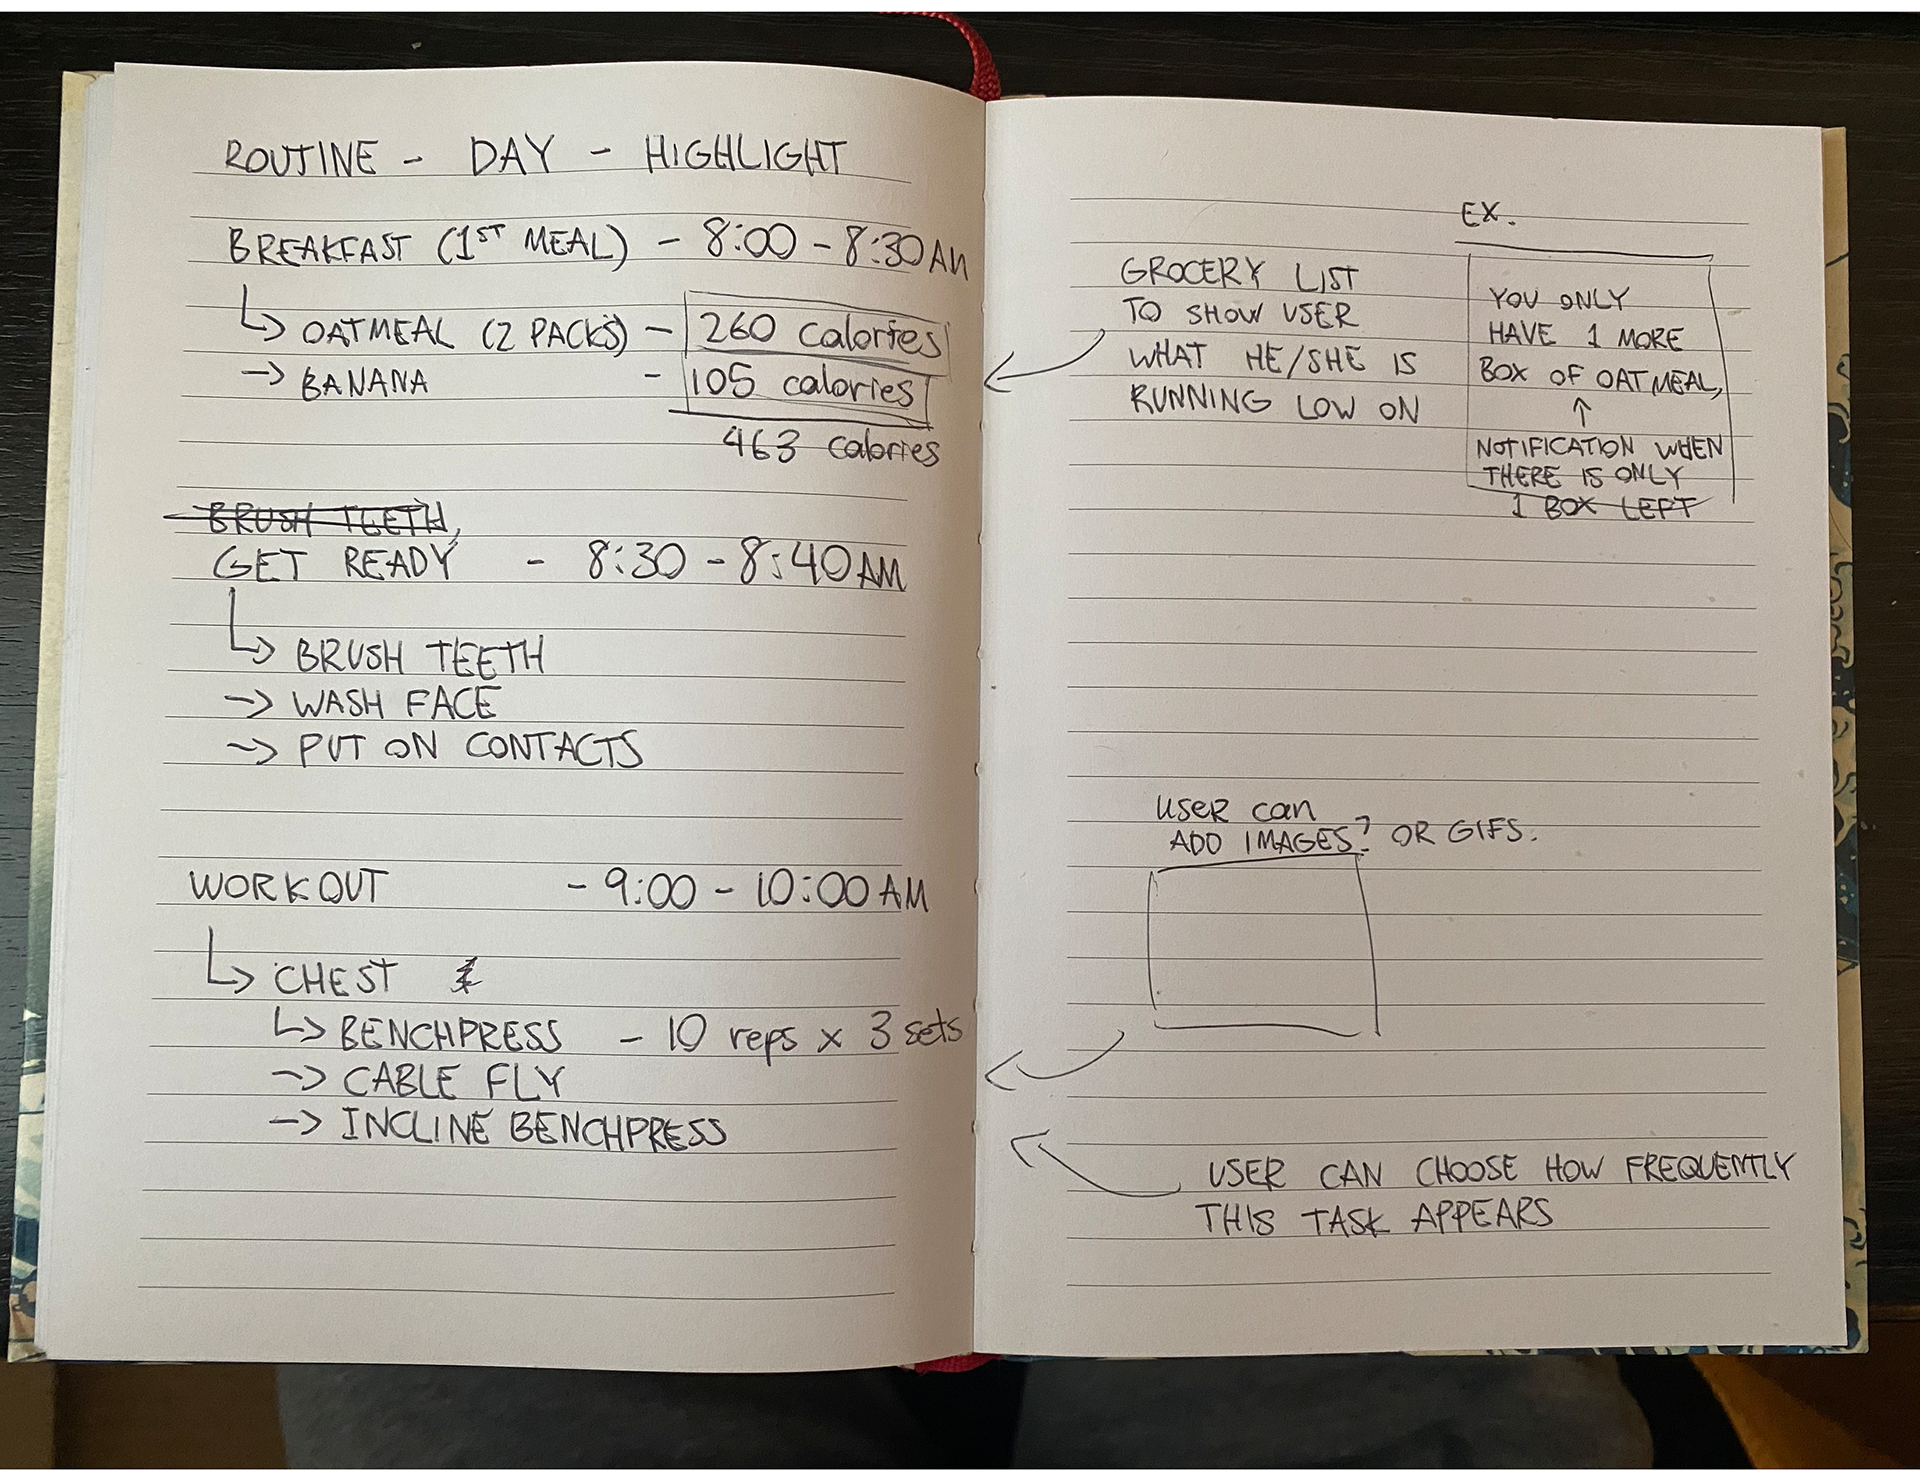 ROUTINE - DAY - HIGHLIGHT
BREAKFAST (1ST MEAL) - 8:00 - 8:30 AM
↳ OATMEAL (2 PACKS) - 260 calories
→ BANANA - 105 calories
463 calories
BRUSH TEETH,
GET READY - 8:30 - 8:40 AM
↳ BRUSH TEETH
→ WASH FACE
→ PUT ON CONTACTS
WORKOUT - 9:00 - 10:00 AM
↳ CHEST
↳ BENCHPRESS - 10 reps x 3 sets
→ CABLE FLY
→ INCLINE BENCHPRESS
GROCERY LIST
TO SHOW USER
WHAT HE/SHE IS
RUNNING LOW ON
EX.
YOU ONLY
HAVE 1 MORE
BOX OF OATMEAL,
↑
NOTIFICATION WHEN
THERE IS ONLY
1 BOX LEFT
USER can
ADD IMAGES? OR GIFS.
USER CAN CHOOSE HOW FREQUENTLY
THIS TASK APPEARS